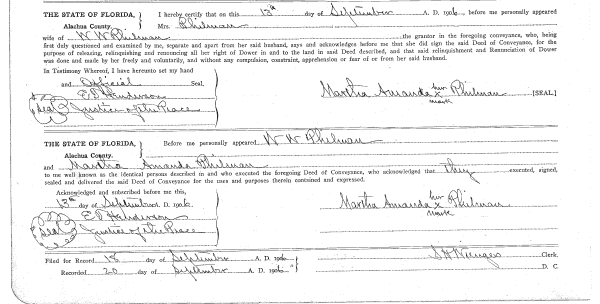 THE STATE OF FLORIDA, I hereby certify that on this 13th day of September A. D. 1906, before me personally appeared
Alachua County. Mrs. Philman
wife of W W Philman the grantor in the foregoing conveyance, who, being
first duly questioned and examined by me, separate and apart from her said husband, says and acknowledges before me that she did sign the said Deed of Conveyance, for the
purpose of releasing, relinquishing and renouncing all her right of Dower in and to the land in said Deed described, and that said relinquishment and Renunciation of Dower
was done and made by her freely and voluntarily, and without any compulsion, constraint, apprehension or fear of or from her said husband.
In Testimony Whereof, I have hereunto set my hand
and Official Seal,
Martha Amanda her x mark Philman [SEAL]
E D
Seal Justice of the Peace
THE STATE OF FLORIDA, Before me personally appeared W W Philman
Alachua County.
and Martha Amanda Philman
to me well known as the identical persons described in and who executed the foregoing Deed of Conveyance, who acknowledged that they executed, signed,
sealed and delivered the said Deed of Conveyance for the uses and purposes therein contained and expressed.
Acknowledged and subscribed before me this,
13th day of September A. D. 1906.
Martha Amanda her x mark Philman
E D
Seal Justice of the Peace
Filed for Record 18 day of September A. D. 1906
Clerk.
Recorded 20 day of September 1906 D. C.